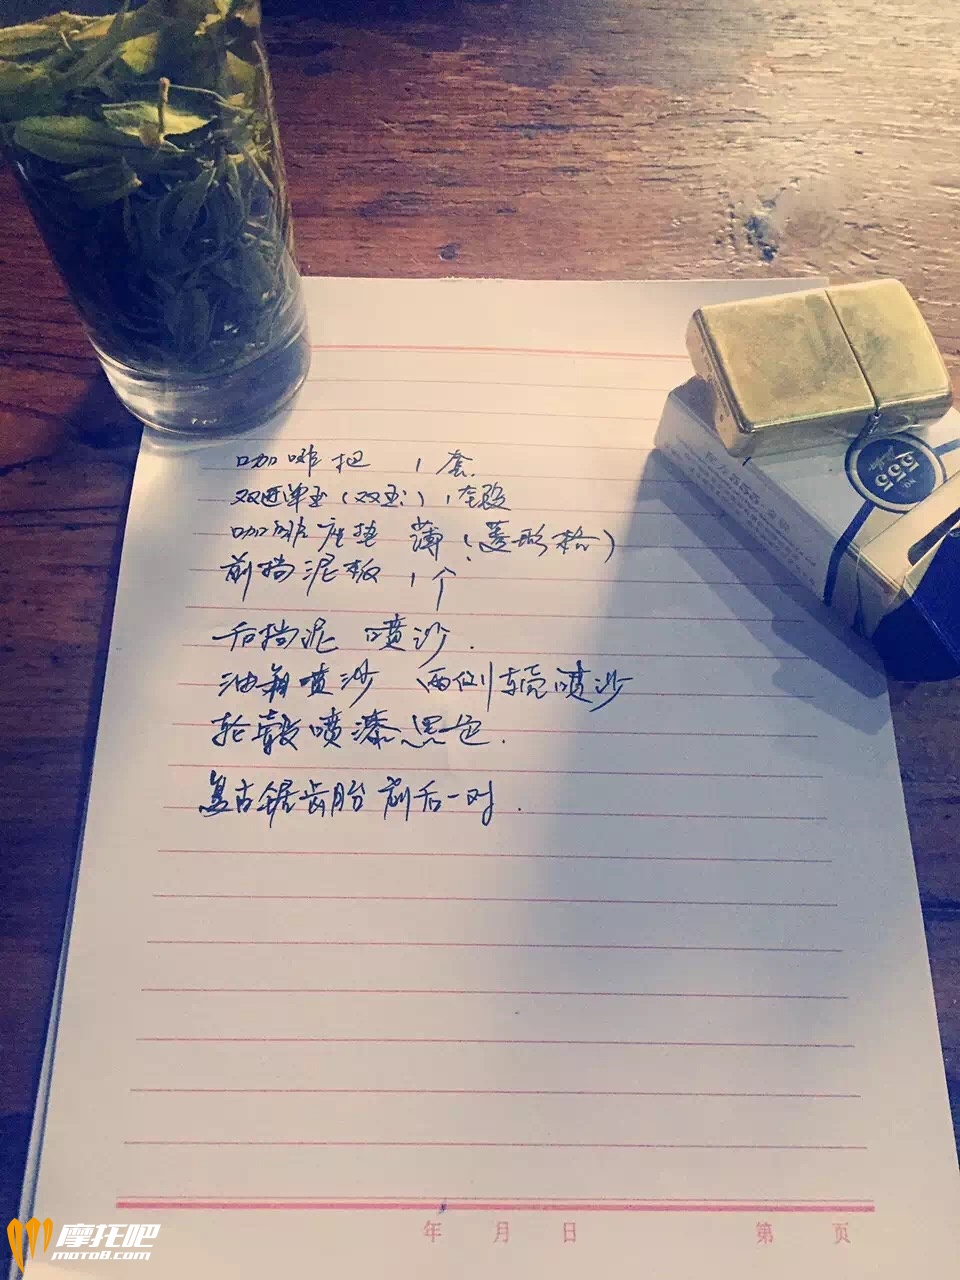 NO.
555
咖啡把 1套.
双进单出(双出:) 1套
咖啡座垫 薄(菱形格)
前挡泥板 1个
后挡泥 喷沙.
油箱喷沙 两侧壳喷沙
轮毂喷漆黑色.
复古锯齿胎 前后一对.
年 月 日 第 页
摩托吧
moto8.com